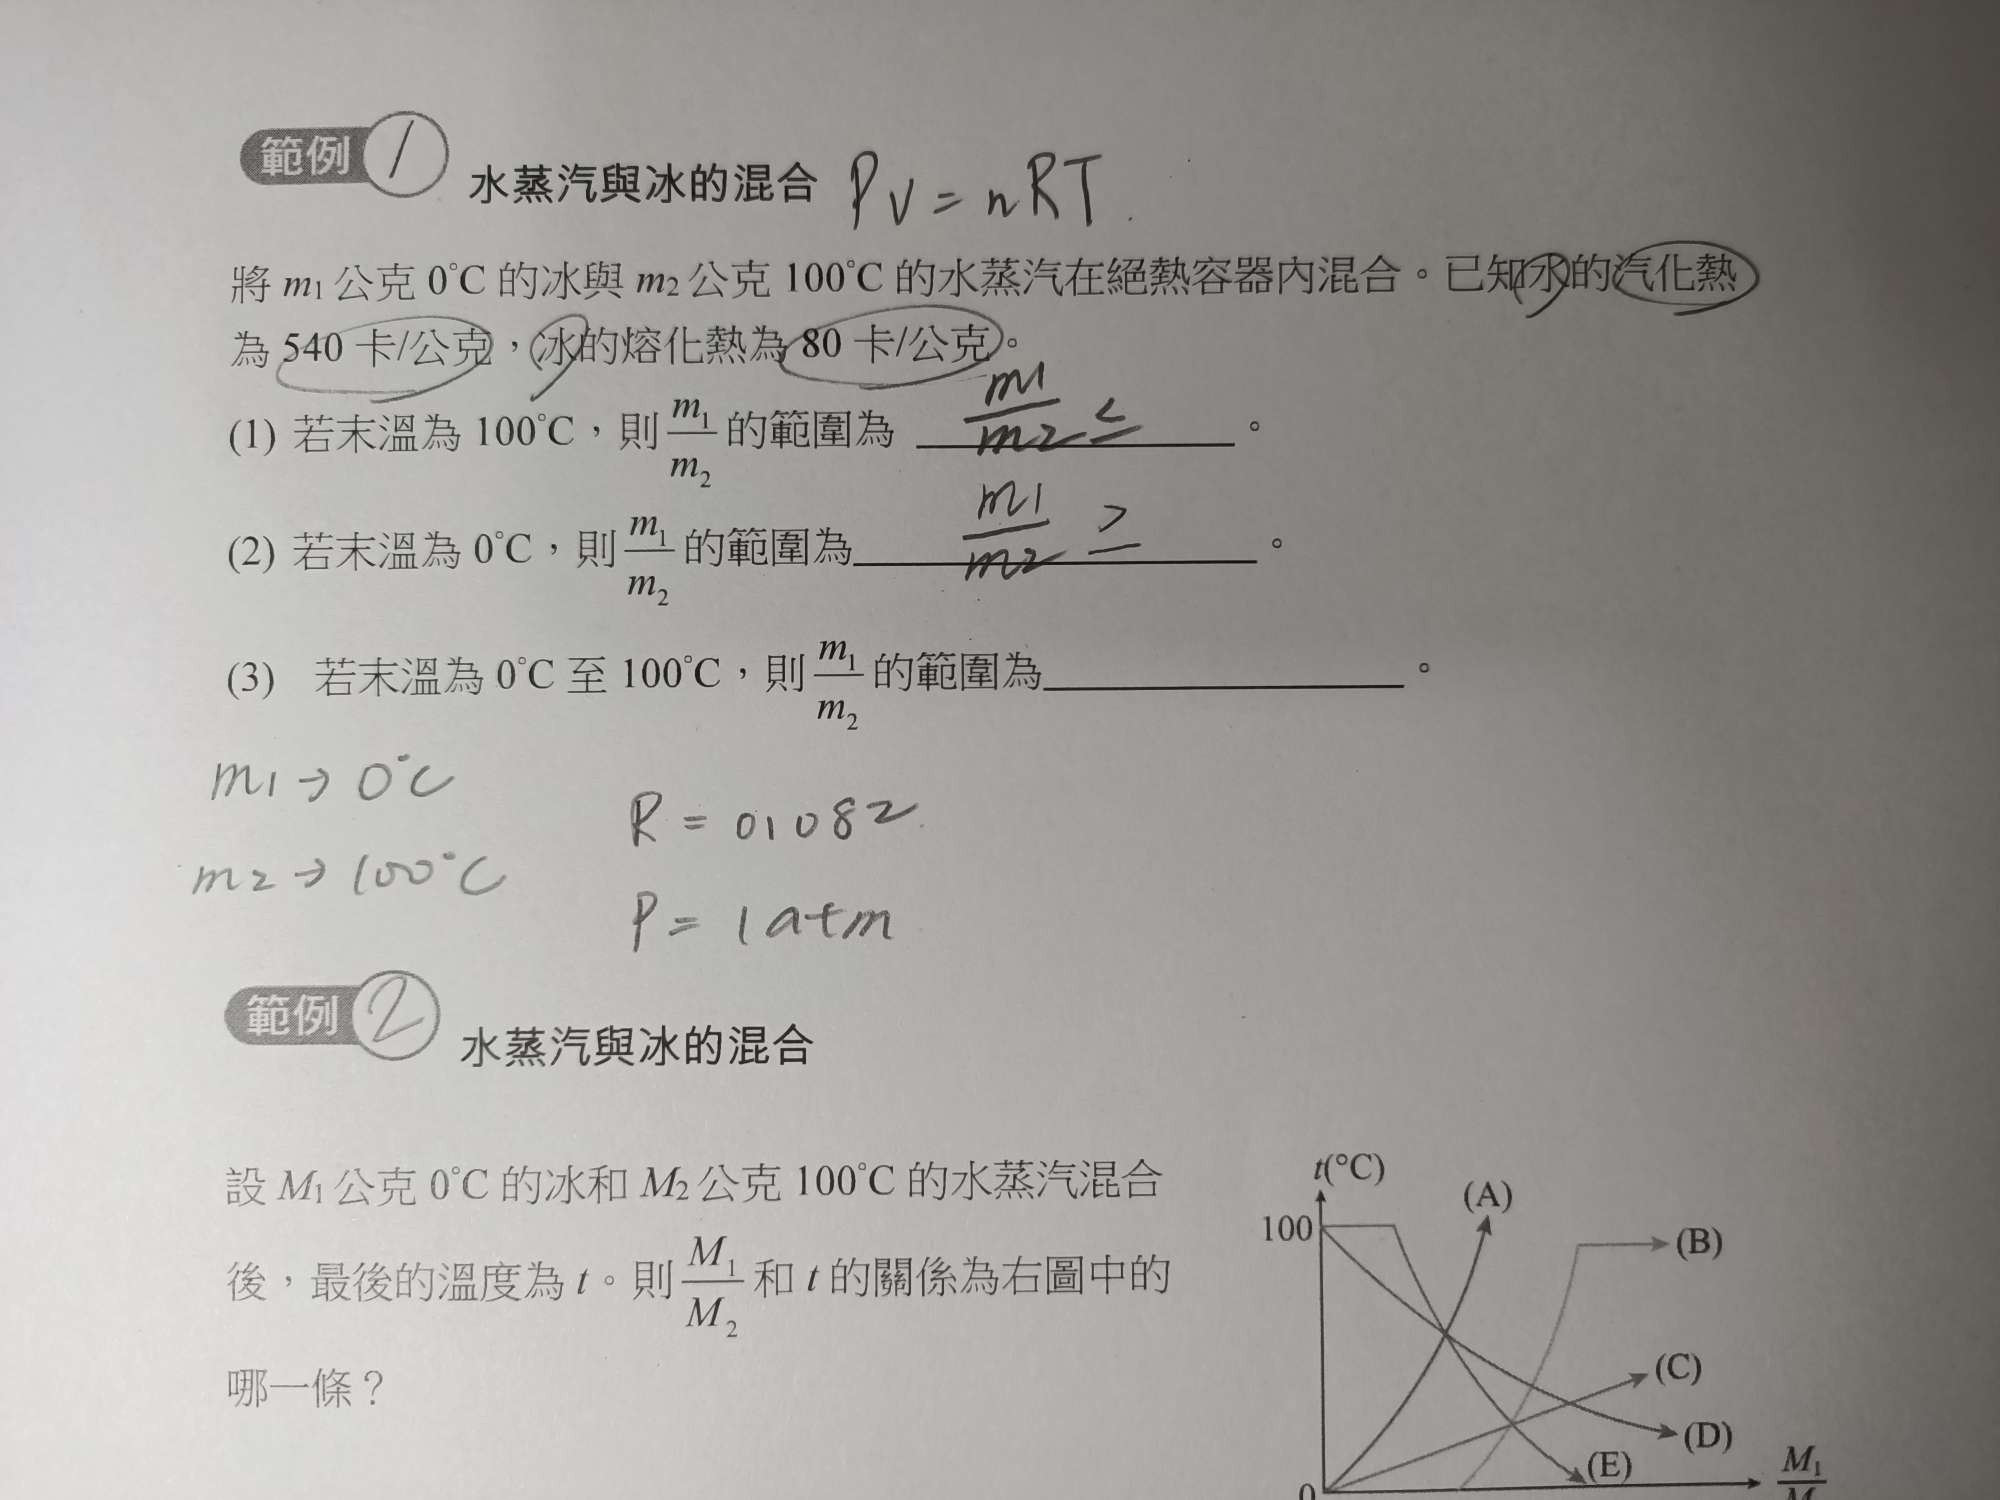 範例 1
水蒸汽與冰的混合 PV = nRT
將 m₁ 公克 0°C 的冰與 m₂ 公克 100°C 的水蒸汽在絕熱容器內混合。已知水的汽化熱
為 540 卡/公克，冰的熔化熱為 80 卡/公克。
(1) 若末溫為 100°C，則 m₁/m₂ 的範圍為 m1/m2 ≤ 。
(2) 若末溫為 0°C，則 m₁/m₂ 的範圍為 m1/m2 ≥ 。
(3) 若末溫為 0°C 至 100°C，則 m₁/m₂ 的範圍為 。
m1 → 0°C
R = 01082
m2 → 100°C
P = 1atm
範例 2
水蒸汽與冰的混合
設 M₁ 公克 0°C 的冰和 M₂ 公克 100°C 的水蒸汽混合
後，最後的溫度為 t。則 M₁/M₂ 和 t 的關係為右圖中的
哪一條？
t(°C)
100
(A)
(B)
(C)
(D)
(E)
0
M₁